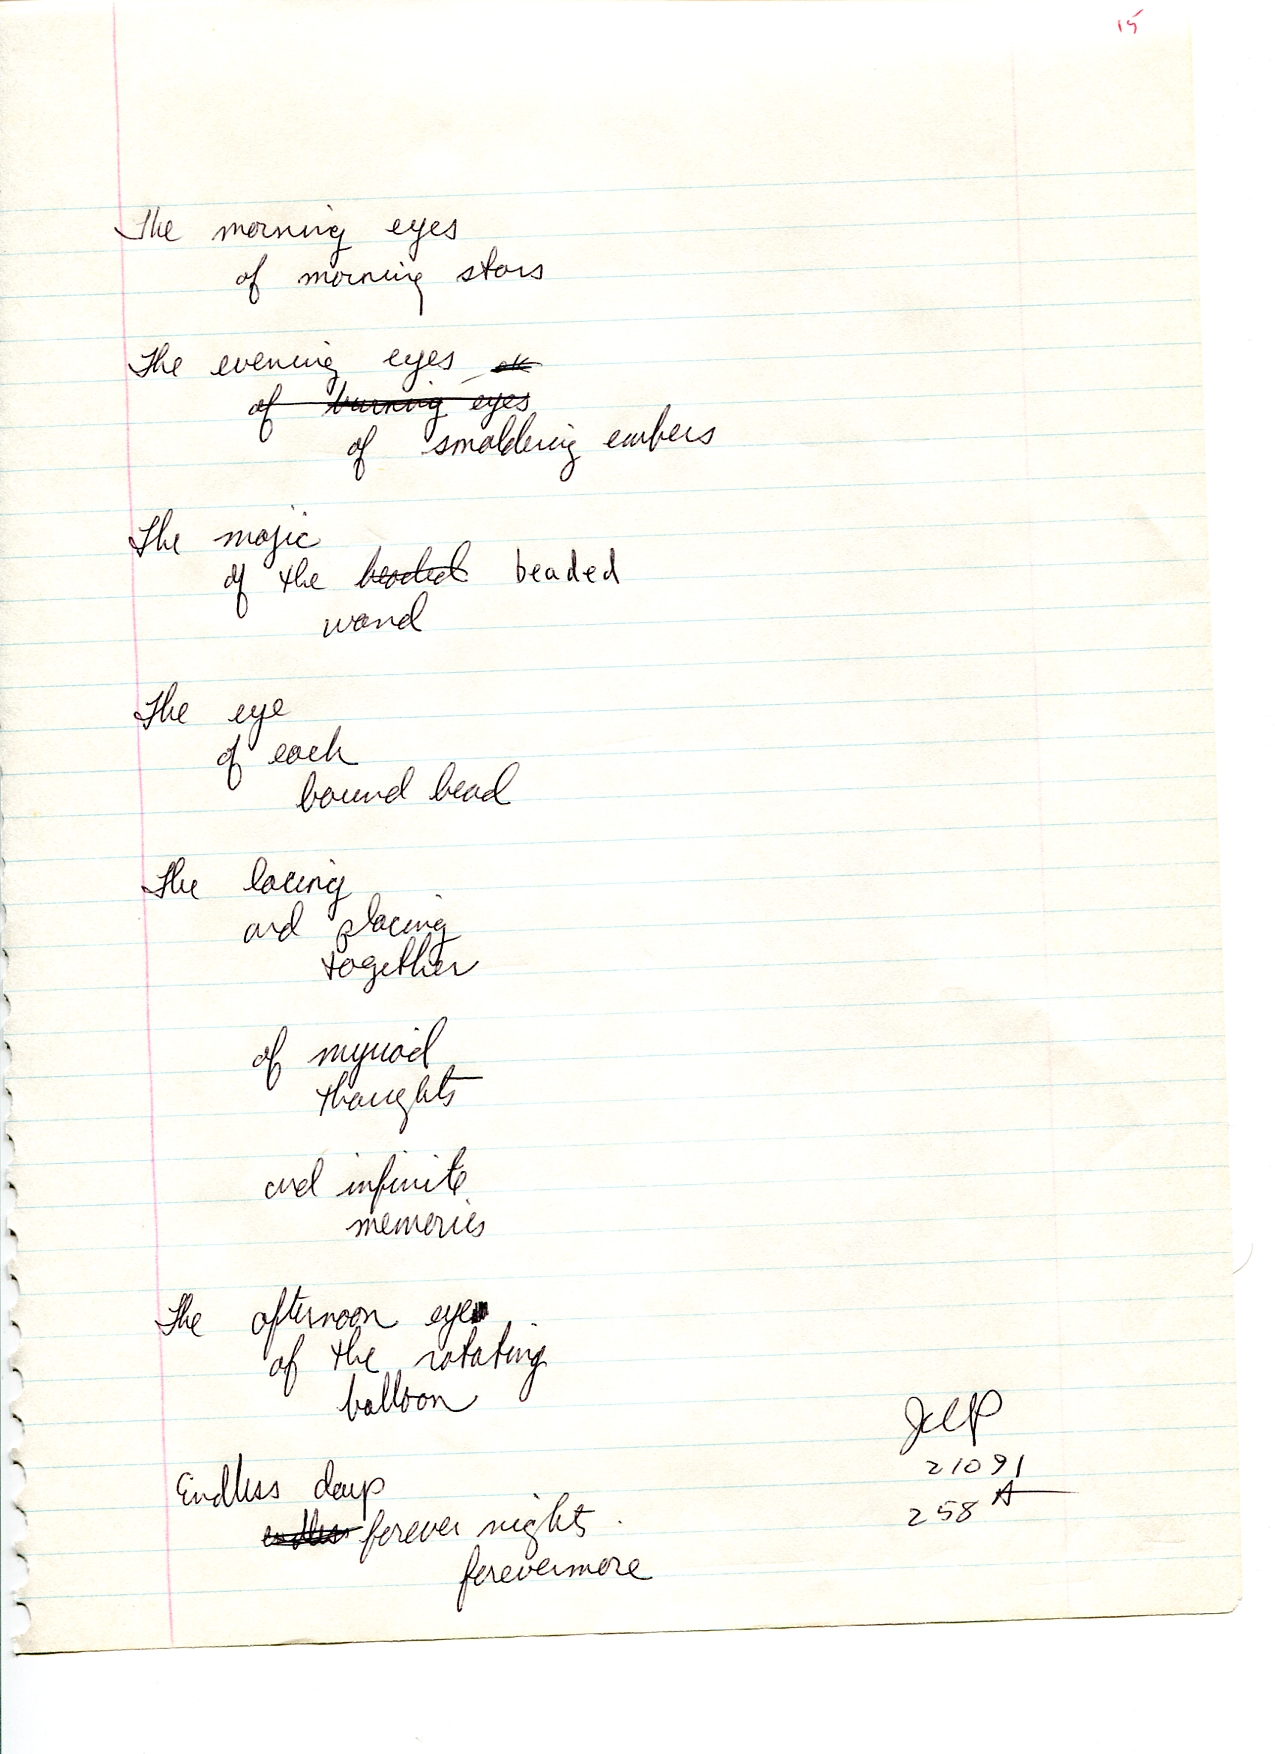 15
The morning eyes
of morning stars
The evening eyes
of burning eyes
of smoldering embers
The magic
of the beaded beaded
wand
The eye
of each
bound bead
The lacing
and placing
together
of myriad
thoughts
and infinite
memories
The afternoon eye
of the rotating
balloon
Endless days
endless forever nights
forevermore
21091
258 A